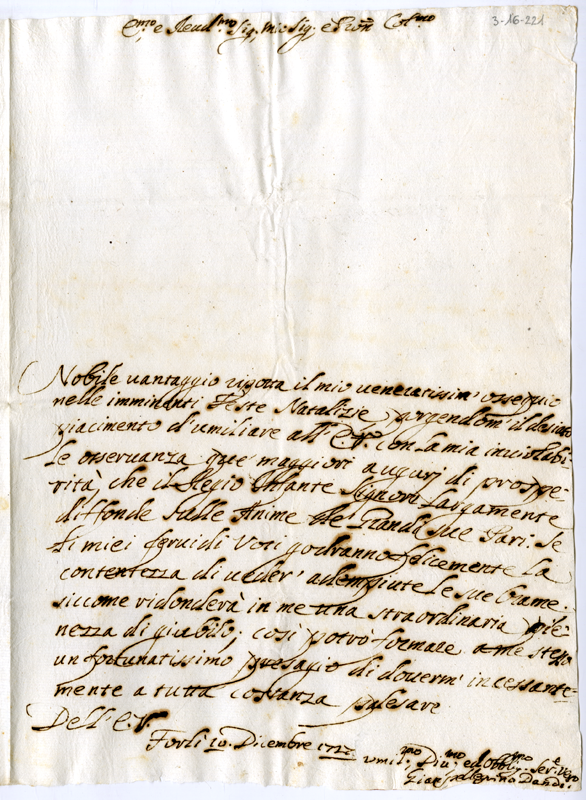 3-16-221
E.mo e Reud.mo Sig. Mio Sig. e Pron Col.mo
Nobile vantaggio riporta il mio veneratissim' ossequio
nelle imminenti Feste Natalizie, porgendom' il desiato
piacimento d'umiliare all' E.V. con la mia inviolabi-
le osservanza que' maggiori augurj di prospe-
rità che il Regio Infante Signore largamente
diffonde sulle Anime de' Grandi sue Pari. Se
li miei fervidi Voti godranno felicemente la
contentezza di veder' adempiute le sue brame,
siccome ridonderà in me una straordinaria pie-
nezza di giubilo; così potrò formare a me stesso
un fortunatissimo presagio di doverm' incessante-
mente a tutta costanza palesare
Dell' E.V.
Forlì 19. Dicembre
umil.mo Diu.mo ed Obbl.mo Ser.e Vero
Gian Pellegrino Dandi.